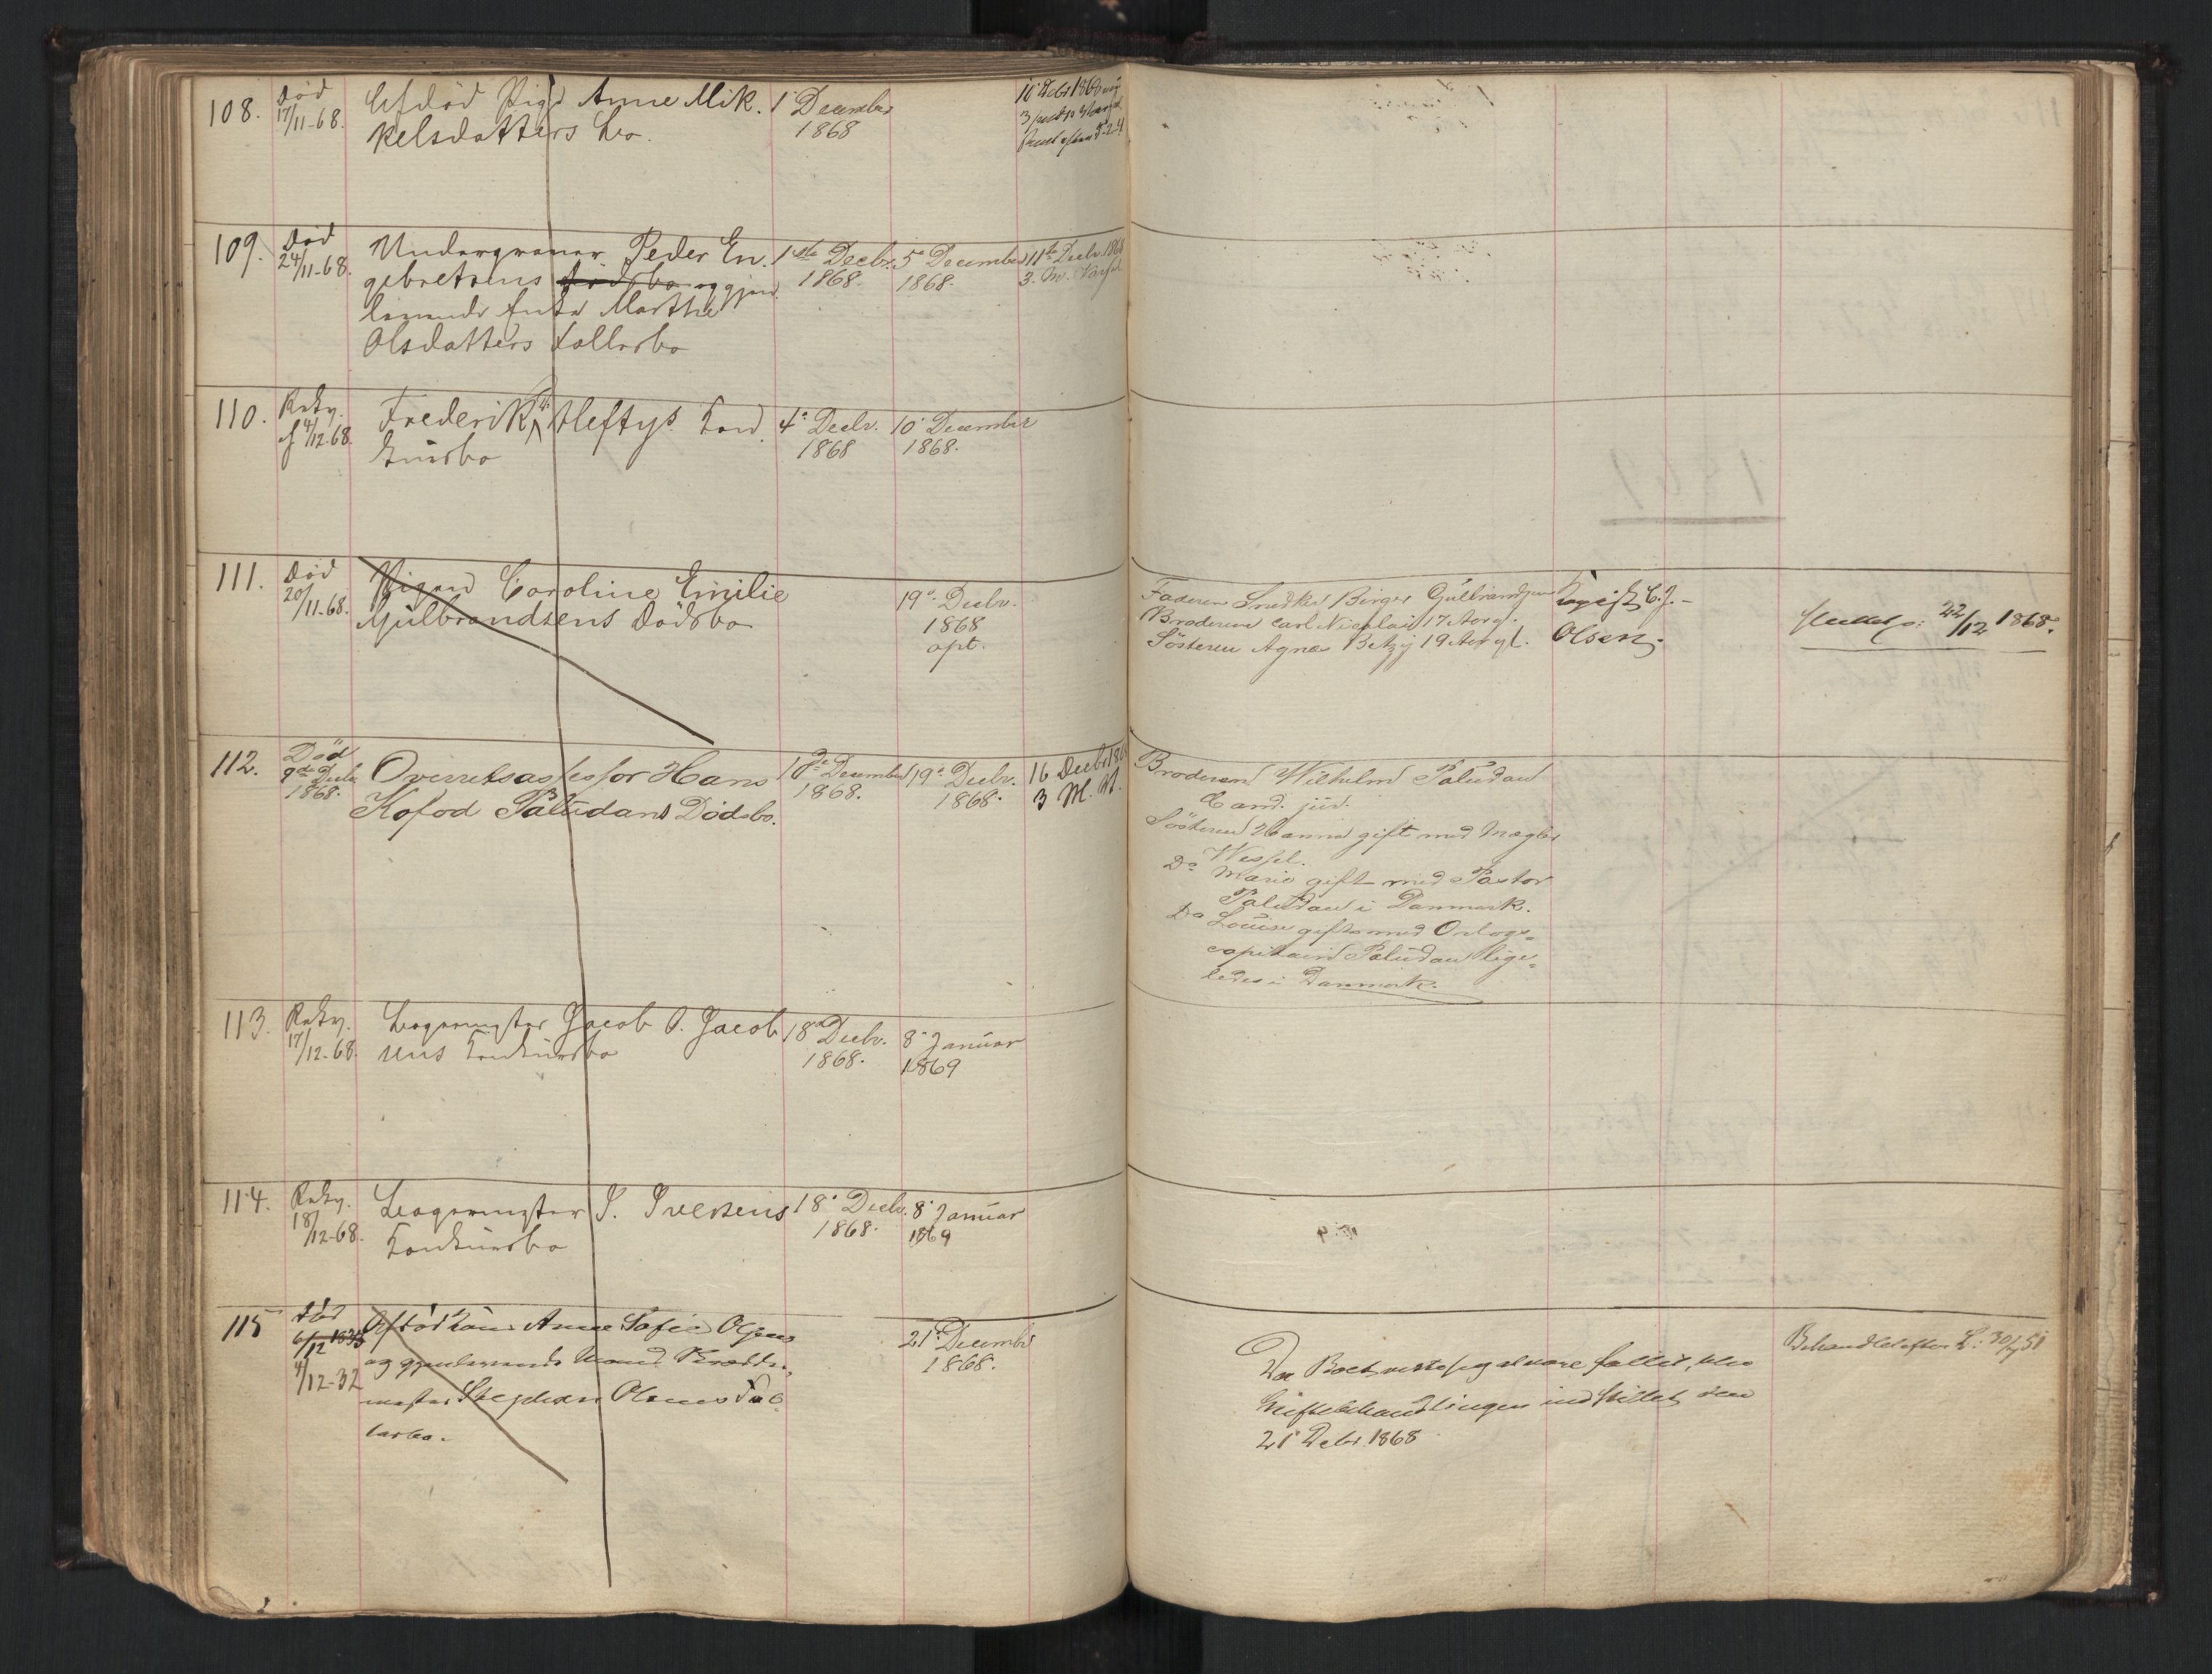 108.
Død
17/11-68.
Afdød Pige Anne Mik.
kelsdatters bo.
1 December
1868
109.
Død
24/11-68.
Undergraver Peder En.
gebretsens og gjen
levende Enke Marthe
Olsdatters Fællesbo
1ste Decbr.
1868.
5e December
1868.
11te Decbr. 1868
3. M.
110.
Rekv.
4/12-68.
Frederik Heftys Kon
kursbo
4e Decbr.
1868
10' December
1868.
111.
Død
20/11-68.
Pigen Caroline Emilie
Gulbrandsens Dødsbo
19e Decbr.
1868
opt.
Faderen Snedker Birger Gulbrandsen
Broderen Carl Nicolai 17 Aar gl.
Søsteren Agnes Betzy 19 Aar gl.
Kopist C. J.
Olsen.
Sluttet p: 22/12 1868.
112.
Død
9de Decbr
1868.
Overretsassessor Hans
Kofod Paludans Dødsbo.
December
1868.
19e Decbr.
1868.
16 Decbr
3 M.
Broderen Wilhelm Paludan
Cand. jur.
Søsteren Hanna gift med Mægler
Wessel.
Do Marie gift med Pastor
Paludan i Danmark.
Do Louise gift med Orlogs=
capitain Paludan lige=
ledes i Danmark.
113.
Rekv.
17/12-68.
Bagermester Jacob O. Jacob
sens Konkursbo
18de Decbr.
1868.
8e Januar
1869
114.
Rekv.
18/12-68.
Bagermester I. Iversens
Konkursbo
18e Decbr.
1868.
8e Januar
1869
115
Død
4/12-32
Afdød Kone Anne Sofie Olsens
og gjenlevende Mand
mester Stephan Olsens Fæl
lesbo.
21e Decembr
1868.
Da Boet viste sig at være fallit, blev
Skiftebehandlingen indstillet den
21' Debr. 1868
Behandlet efter L. 30/7 51